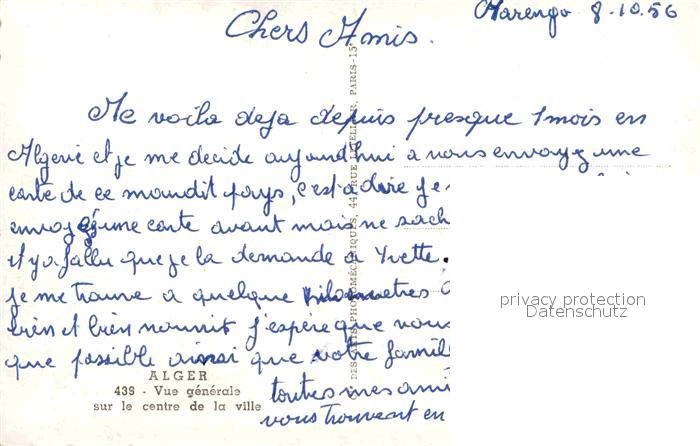 Marengo 8.10.56
Chers Amis.
Me voila deja depuis presque 1 mois en
Algerie et je me decide aujourd'hui a vous envoyez une
carte de ce maudit pays, c'est a dire je
envoyez une carte avant mais ne sach
il y a fallu que je la demande a Yvette.
je me trouve a quelque kilometres
bien et bien nourrit j'espère que vous
que possible ainsi que votre famil
toutes mes ami
vous trouvent en
ALGER
439 - Vue générale
sur le centre de la ville
DES ARTS PHOTOMÉCANIQUES, 44, RUE LETELLIER, PARIS-15
privacy protection
Datenschutz